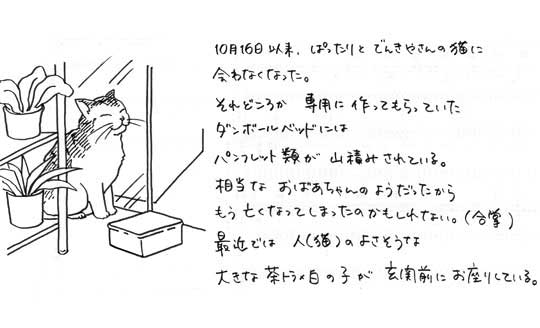 10月16日以来、ぱったりと でんきやさんの猫に
会わなくなった。
それどころか 専用に作ってもらっていた
ダンボールベッドには
パンフレット類が山積みされている。
相当な おばあちゃんのようだったから
もう亡くなってしまったのかもしれない。(合掌)
最近では 人(猫)のよさそうな
大きな茶トラ×白の子が 玄関前にお座りしている。